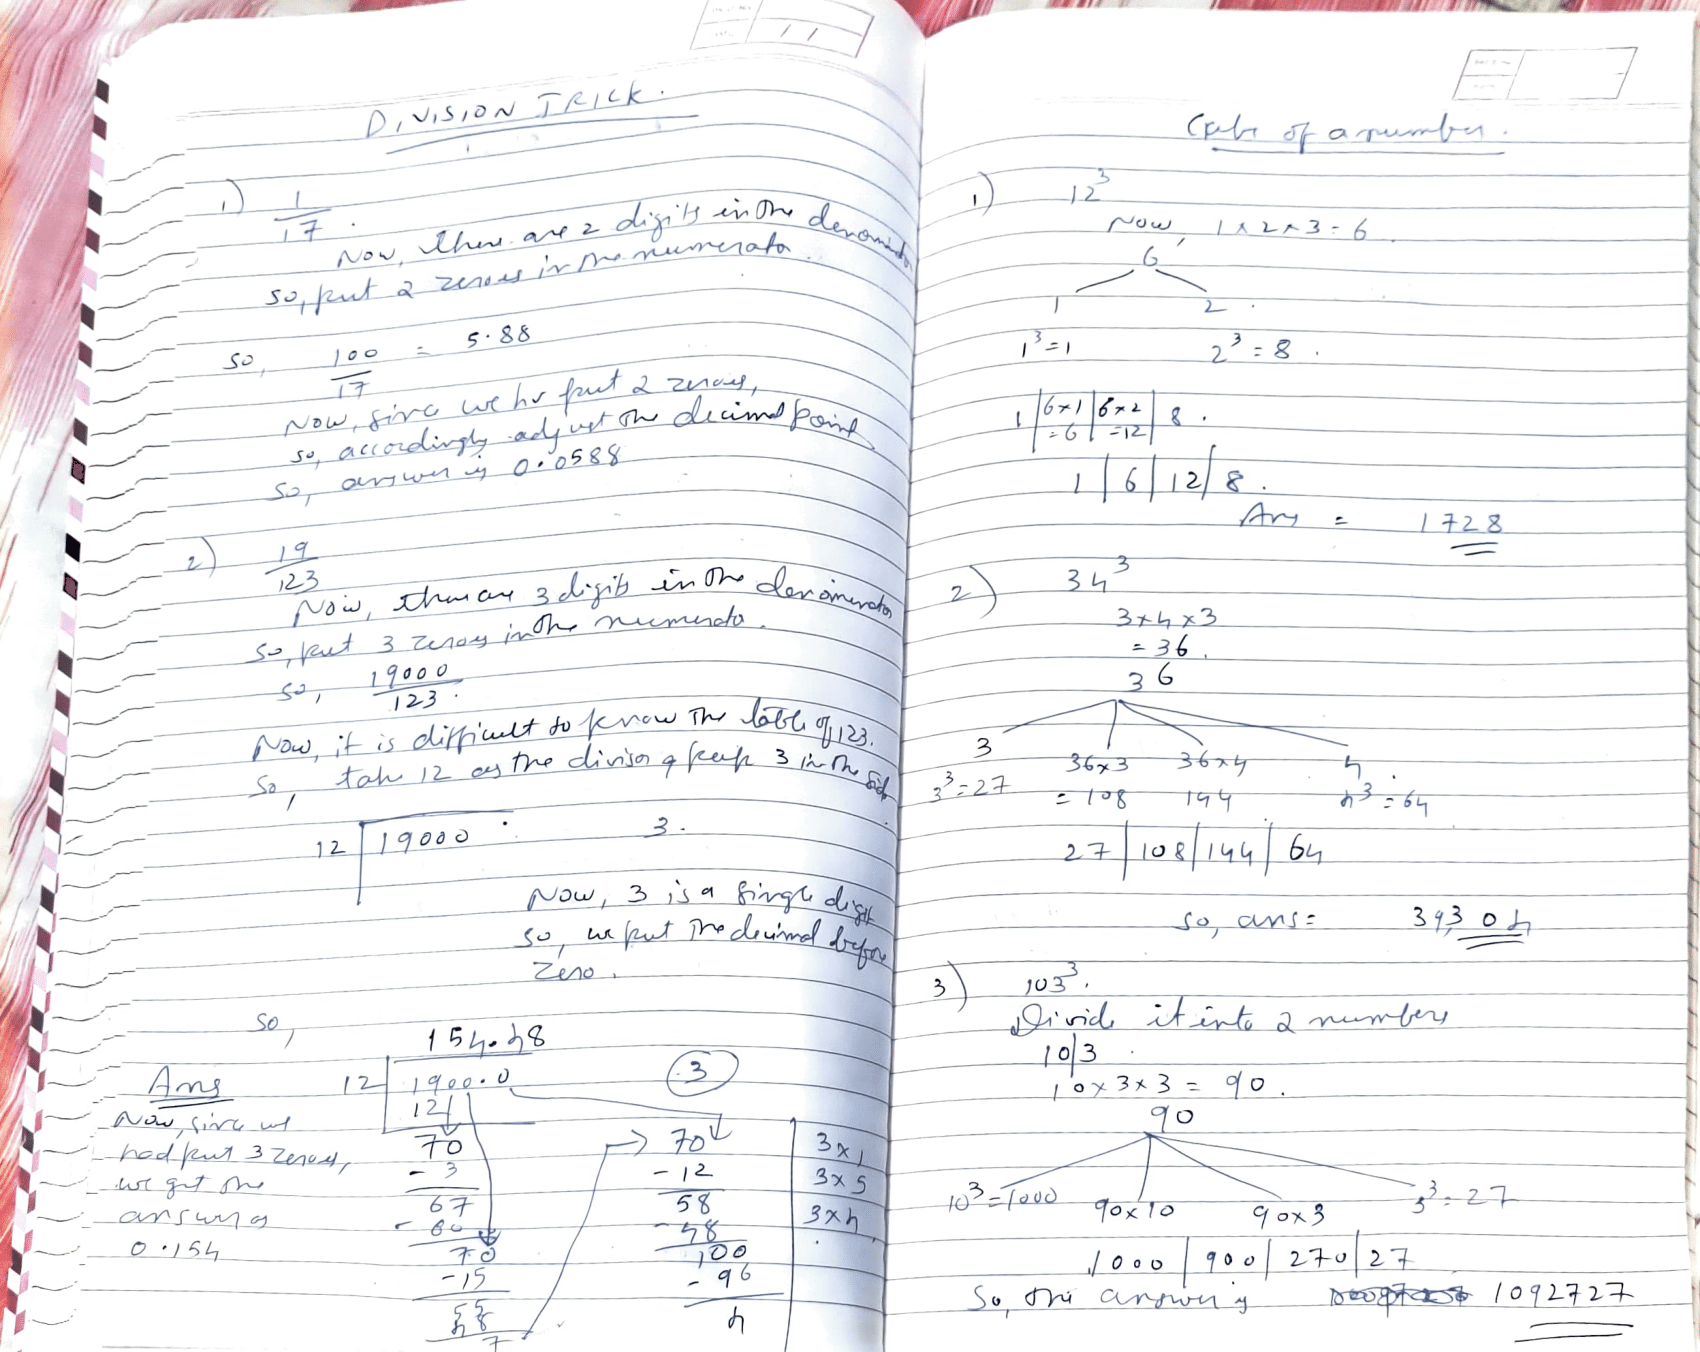 DIVISION TRICK.
1) 1/17.
Now, there are 2 digits in the denominator
so, put 2 zeroes in the numerator.
so, 100/17 = 5.88
Now, since we hv put 2 zeroes,
so, accordingly adjust the decimal point
so, answer is 0.0588
2) 19/123
Now, there are 3 digits in the denominator
so, put 3 zeroes in the numerator.
so, 19000/123.
Now, it is difficult to know the table of 123.
so, take 12 as the divisor & keep 3 in the side
12 19000 3.
Now, 3 is a single digit
so, we put the decimal before
zero.
so,
154.48
12 1900.0 3
12
70
- 3
67
- 60
70
- 15
55
48
7
70
- 12
58
- 48
100
- 96
4
3x1
3x5
3x4
Ans
Now, since we
had put 3 zeroes,
we get the
answer as
0.154
Cube of a number.
1) 12³
Now, 1x2x3=6
6
1 2.
1³=1 2³=8.
1 | 6x1 =6 | 6x2 =12 | 8.
1 | 6 | 12 | 8.
Ans = 1728
2) 34³
3x4x3
= 36.
36
3 36x3 36x4 4
3³=27 = 108 144 4³=64
27 | 108 | 144 | 64
so, ans = 39304
3) 103³.
Divide it into 2 numbers
10/3
10x3x3 = 90.
90
10³=1000 90x10 90x3 3³=27
1000 | 900 | 270 | 27
So, the answer is 1092727